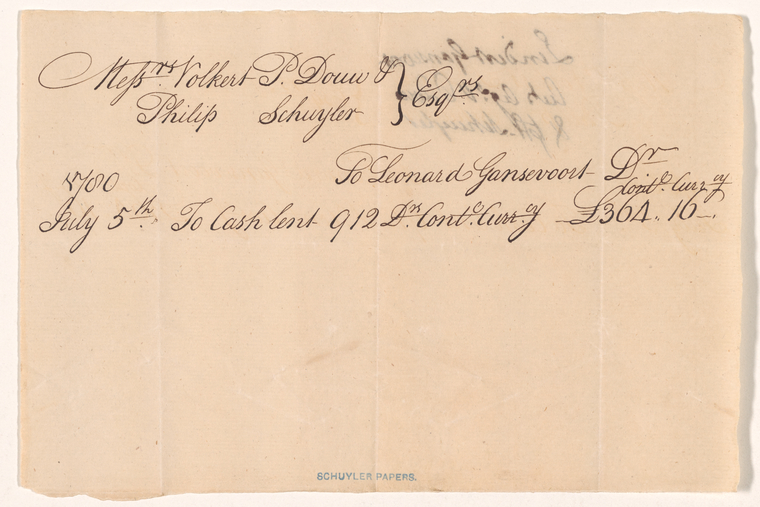 Messrs. Volkert P. Douw &
Philip Schuyler } Esqrs.
To Leonard Gansevoort Dr.
1780
Contl. Currcy
July 5th. To Cash lent 912 Drs. Contl. Currcy £364.. 16 —.
SCHUYLER PAPERS.